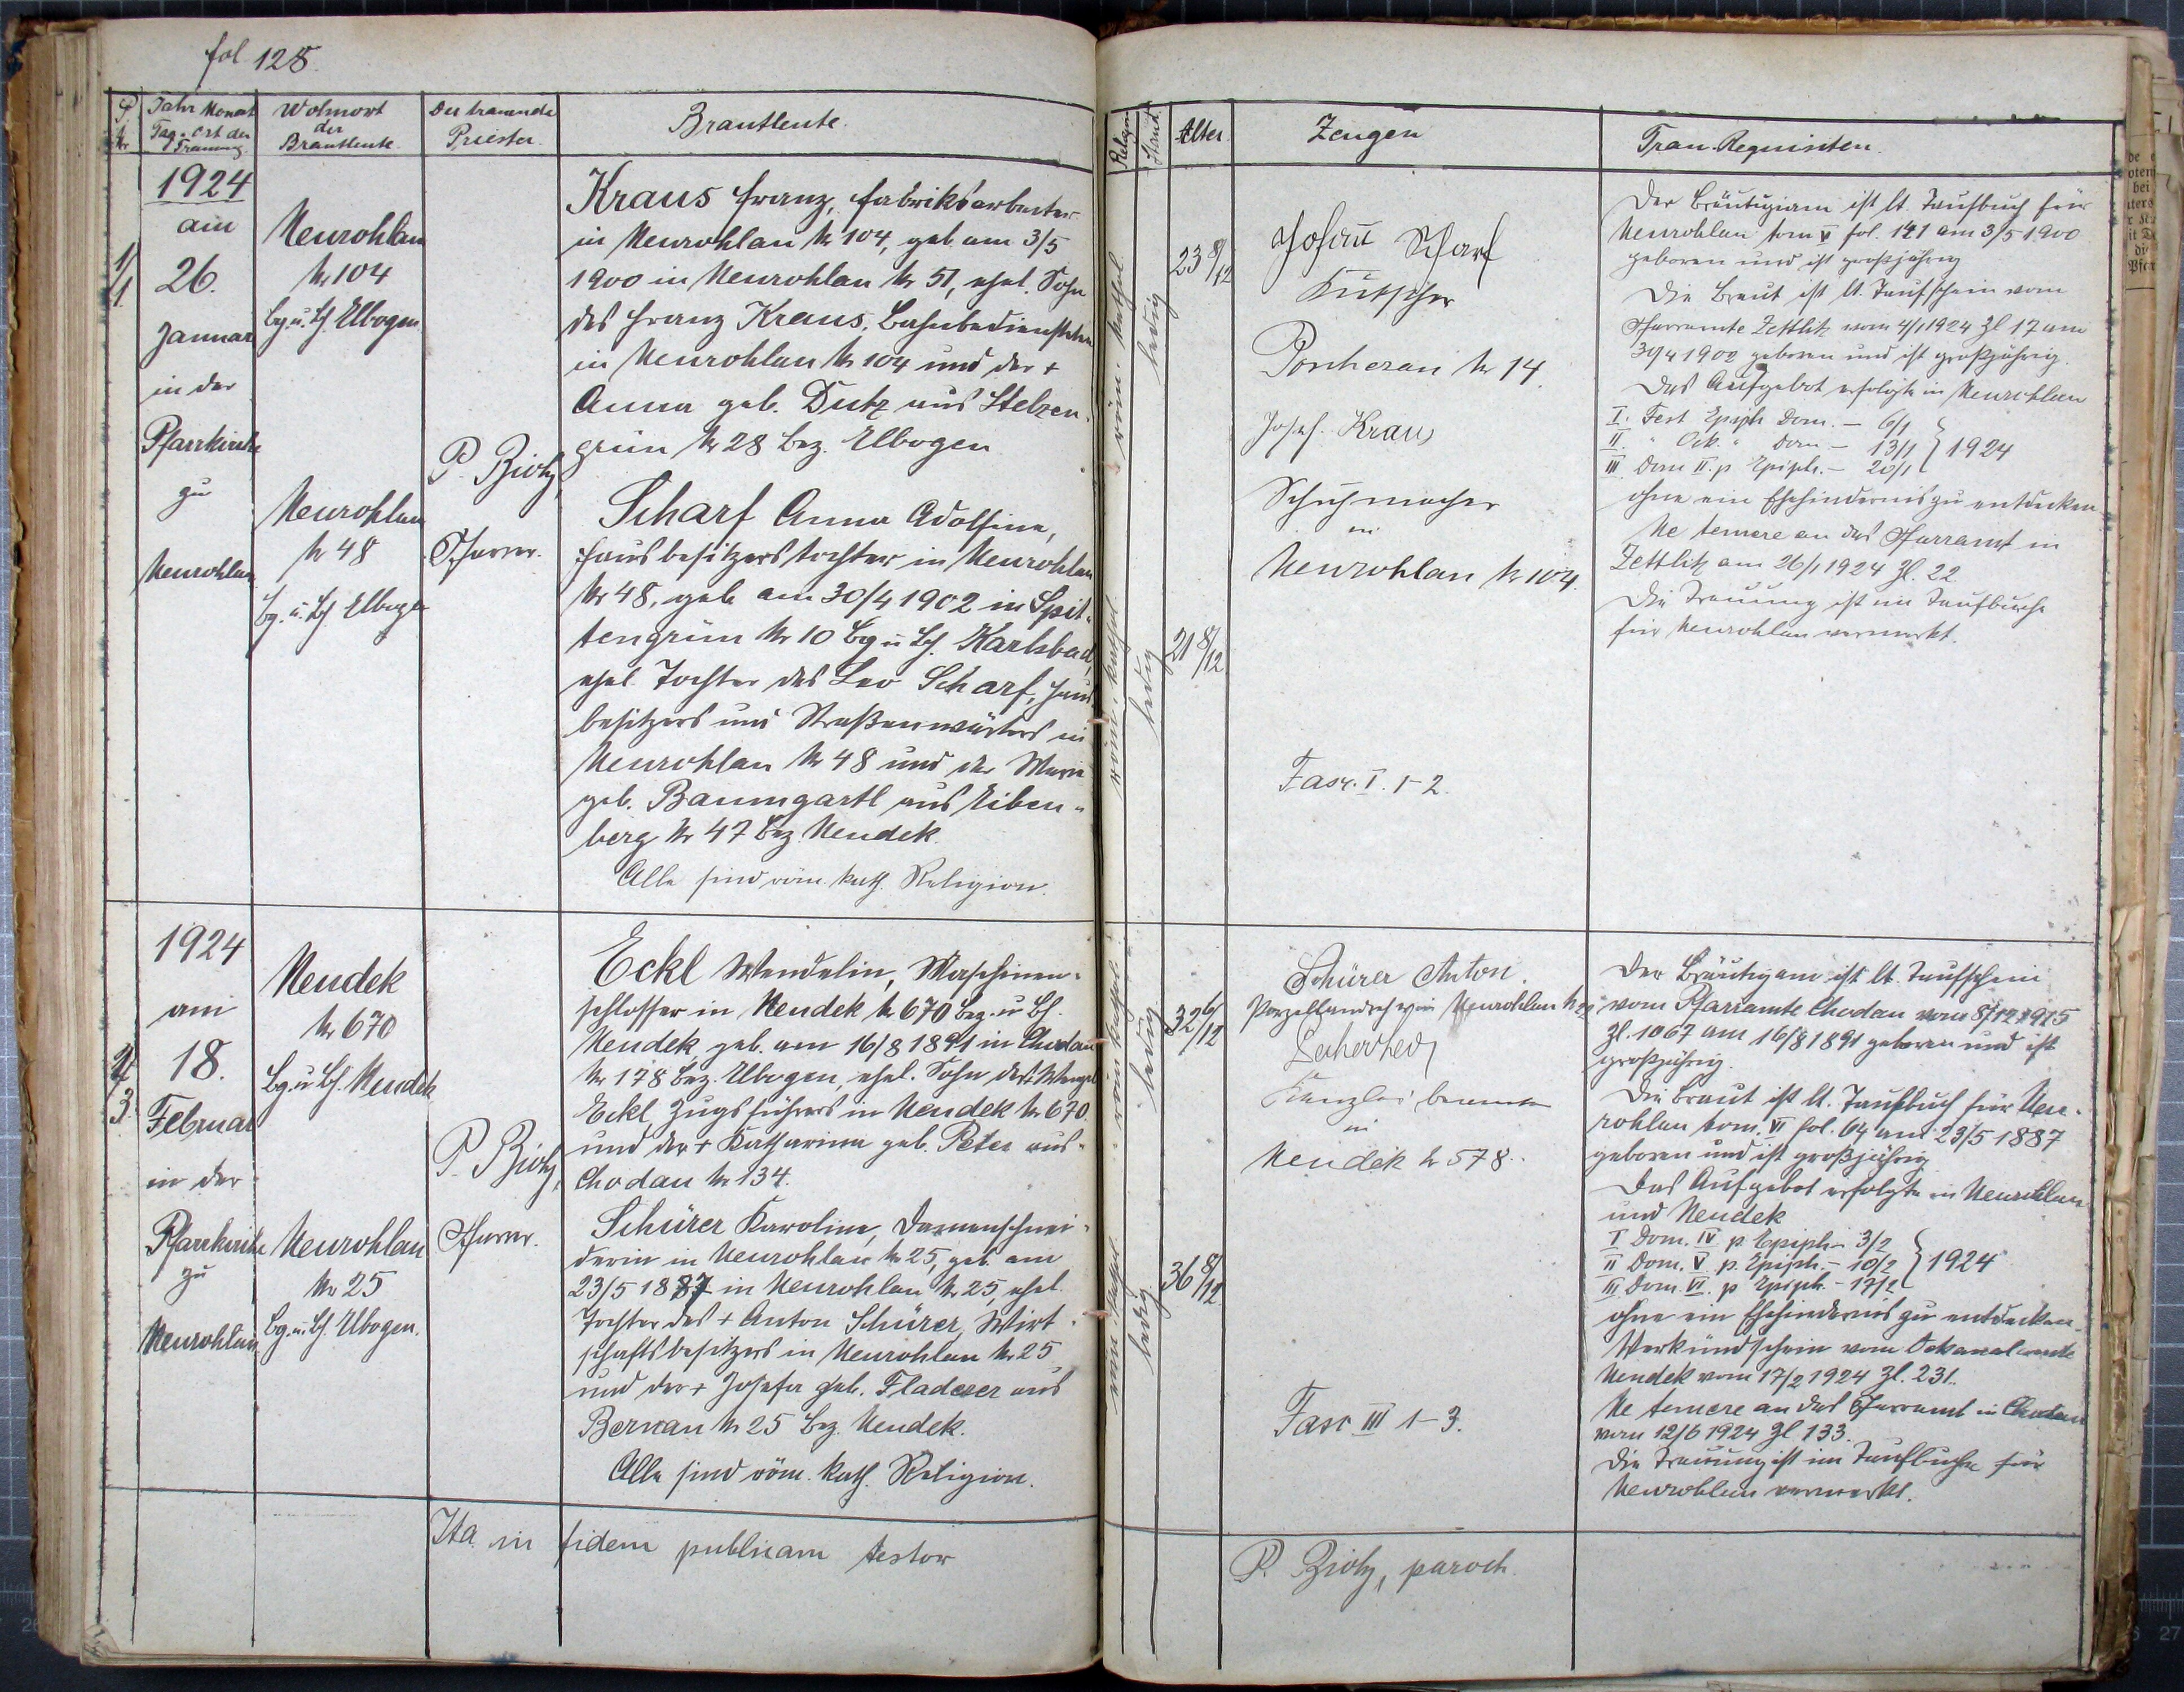 fol 128.
P. Nr
Jahr Monat
Tag u. Ort der
Trauung
Wohnort
der
Brautleute
Der trauende
Priester.
Brautleute.
Religion
Stand
Alter.
Zeugen
Trau-Requisiten.
1/1.
1924
am
26.
Januar
in der
Pfarrkirche
zu
Neurohlau
Neurohlau
Nr 104
Bg. u. Bh. Elbogen.
Neurohlau
Nr 48
Bg. u. Bh. Elbogen
P.
Pfarrer.
Kraus Franz, Fabriksarbeiter
in Neurohlau Nr 104, geb. am 3/5
1900 in Neurohlau Nr 51, ehel. Sohn
des Franz Kraus, Bahnbediensteten
in Neurohlau Nr 104 und der +
Anna geb. Dutz aus Stelzen-
grün Nr 28 Bez. Elbogen
Scharf Anna Adolfine,
Hausbesitzerstochter in Neurohlau
Nr 48, geb. am 30/4 1902 in Spit-
tengrün Nr 10 Bg u. Bh. Karlsbad,
ehel. Tochter des Leo Scharf, Haus-
besitzers und Straßenwärters in
Neurohlau Nr 48 und der Marie
geb. Baumgartl aus Eiben-
berg Nr 47 Bez. Neudek.
Alle sind röm. kath. Religion.
röm. kathol.
ledig
23 8/12
röm. kathol.
ledig
21 8/12
Johann Scharf
Kutscher
Poschezau Nr 14.
Josef Kraus
Schuhmacher
in
Neurohlau Nr 104.
Fasc. I. 1-2.
Der Bräutigam ist lt. Taufbuch für
Neurohlau tom V fol. 141 am 3/5 1900
geboren und ist großjährig
Die Braut ist lt. Taufschein vom
Pfarramte Zettlitz vom 4/1 1924 Zl 17 am
30/4 1902 geboren und ist großjährig.
Das Aufgebot erfolgte in Neurohlau
I. Fest Epiph Dom. - 6/1
II. " Ock. " Dom - 13/1 } 1924
III Dom II. p Epiph. - 20/1
ohne ein Ehehindernis zu entdecken.
Ne temere an das Pfarramt in
Zettlitz am 26/1 1924 Zl. 22
Die Trauung ist im Taufbuche
für Neurohlau vermerkt.
2/3.
1924
am
18.
Februar
in der
Pfarrkirche
zu
Neurohlau
Neudek
Nr 670
Bg. u. Bh. Neudek
Neurohlau
Nr 25
Bg. u. Bh. Elbogen.
P.
Pfarrer.
Eckl Wendelin, Maschinen-
schlosser in Neudek Nr 670 Bez. u Bh.
Neudek, geb. am 16/8 1891 in Chodau
Nr 178 Bez. Elbogen, ehel. Sohn des + Wenzel
Eckl, Zugsführers in Neudek Nr 670
und der + Katharina geb. Peter aus
Chodau Nr 134.
Schürer Karoline, Damenschnei-
derin in Neurohlau Nr 25, geb. am
23/5 1887 in Neurohlau Nr 25, ehel.
Tochter des + Anton Schürer, Wirt-
schaftsbesitzers in Neurohlau Nr 25
und der + Josefa geb. Fladerer aus
Bernau Nr 25 Bez. Neudek.
Alle sind röm. kath. Religion.
röm. kathol.
ledig
32 6/12
röm. kathol.
ledig
36 8/12
Schürer Anton
in Neurohlau Nr
in
Neudek Nr 578.
Fasc III 1-3.
Der Bräutigam ist lt. Taufschein
vom Pfarramte Chodau vom 8/12 1915
Zl. 1067 am 16/8 1891 geboren und ist
großjährig.
Die Braut ist lt. Taufbuch für Neu-
rohlau tom. VI fol. 64 am 23/5 1887
geboren und ist großjährig
Das Aufgebot erfolgte in Neurohlau
und Neudek
I Dom. IV p. Epiph - 3/2
II Dom. V p. Epiph. - 10/2 } 1924
III Dom. VI. p Epiph. - 17/2
ohne ein Ehehindernis zu entdecken.
Verkündschein vom Dekanalamte
Neudek vom 17/2 1924 Zl. 231.
Ne temere an das Pfarramt in Chodau
vom 12/6 1924 Zl 133.
Die Trauung ist im Taufbuche für
Neurohlau vermerkt.
Ita in fidem publicam testor
P. paroch.